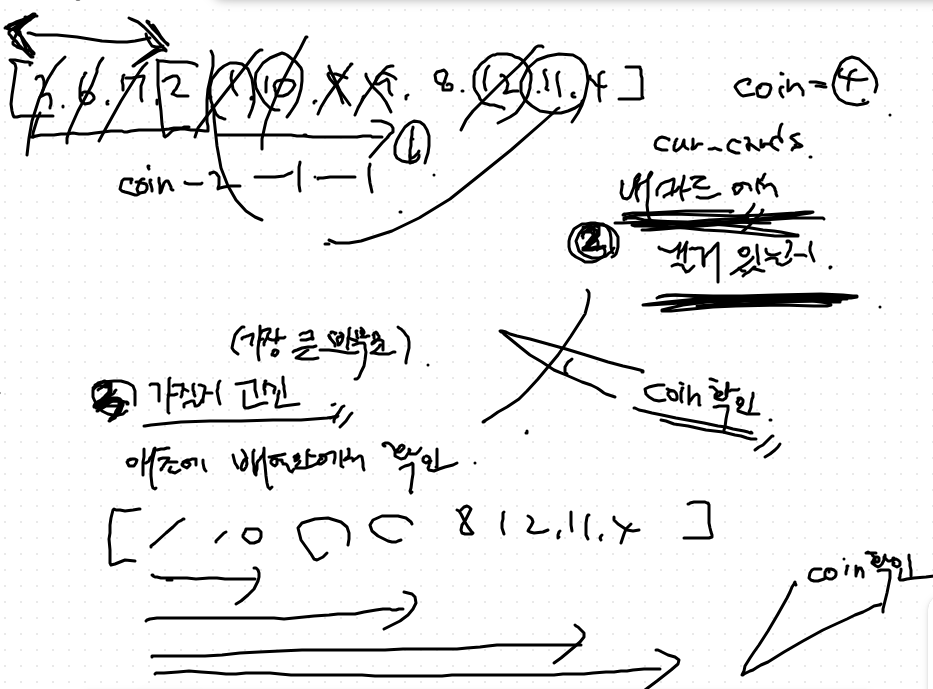 [3.6.7.2 1.10. 8.12.11.4] coin=4
①
cur_cards.
coin-2 -1-1
내카드 에서
② 낼거 있는지.
(가장 큰 )
가질지 고민
coin확인
애초에 배열안에서 확인
[ 1 . 10 8 12.11.4 ]
coin확인